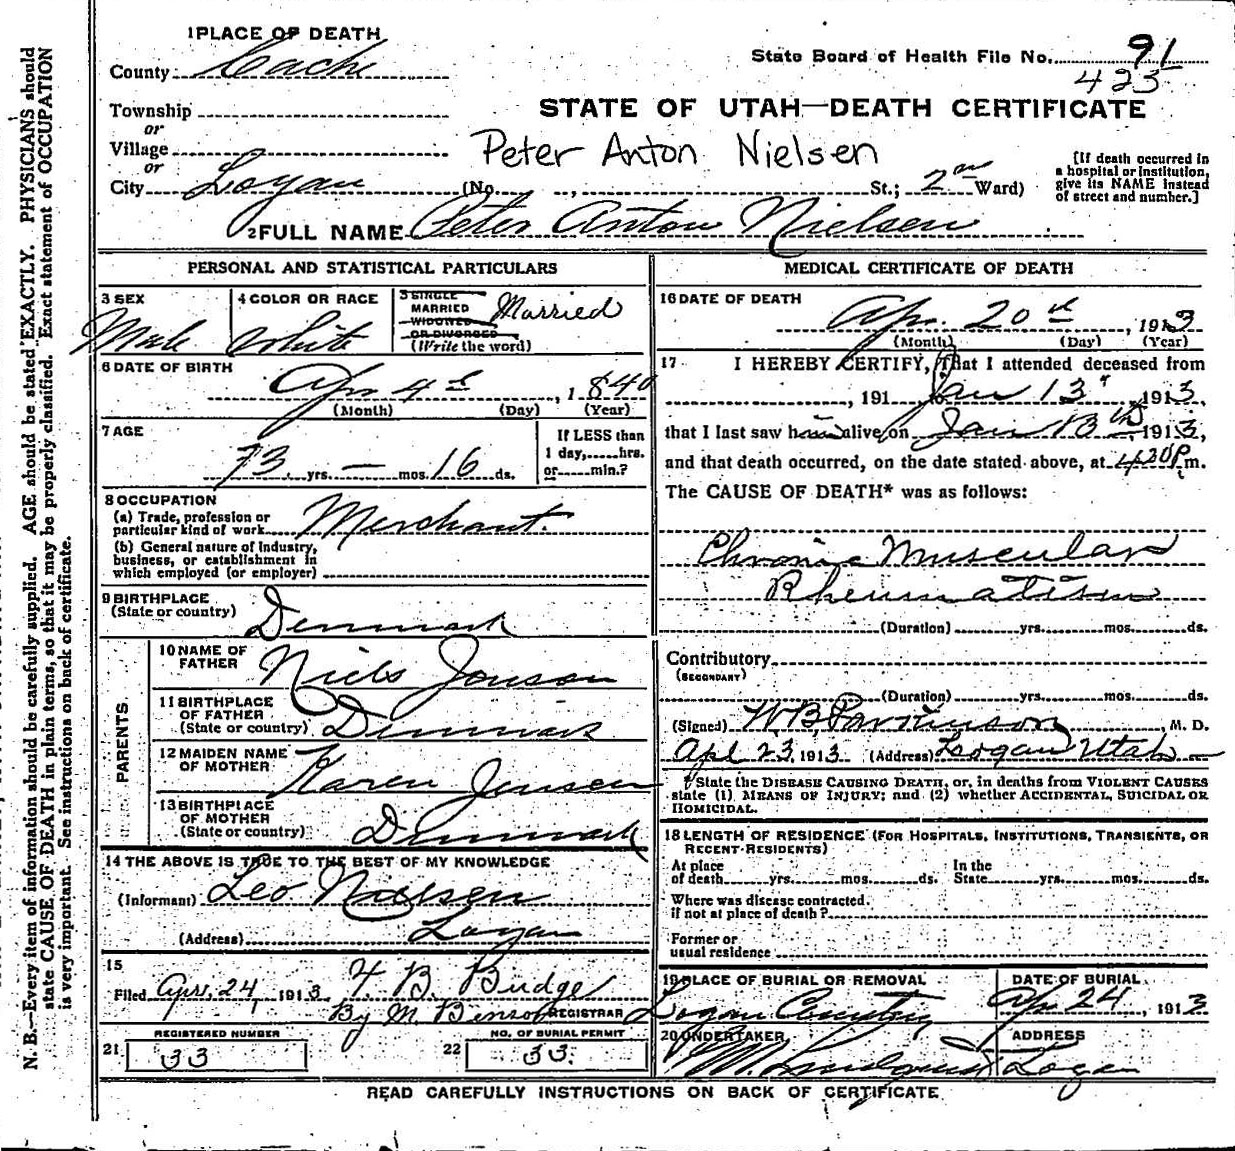 1 PLACE OF DEATH
County Cache
State Board of Health File No. 91
423
Township
or
Village
or
City Logan (No. , St.; 2nd Ward)
STATE OF UTAH—DEATH CERTIFICATE
Peter Anton Nielsen
[If death occurred in
a hospital or institution,
give its NAME instead
of street and number.]
2 FULL NAME Peter Anton Nielsen
PERSONAL AND STATISTICAL PARTICULARS
3 SEX
Male
4 COLOR OR RACE
White
5 SINGLE
MARRIED
WIDOWED
OR DIVORCED
(Write the word)
Married
6 DATE OF BIRTH
Apr 4th, 1840
(Month) (Day) (Year)
7 AGE
73 yrs. — mos. 16 ds.
If LESS than
1 day,.....hrs.
or.....min.?
8 OCCUPATION
(a) Trade, profession or
particular kind of work Merchant.
(b) General nature of industry,
business, or establishment in
which employed (or employer)
9 BIRTHPLACE
(State or country) Denmark
PARENTS
10 NAME OF
FATHER Niels Jonson
11 BIRTHPLACE
OF FATHER
(State or country) Denmark
12 MAIDEN NAME
OF MOTHER Karen Jensen
13 BIRTHPLACE
OF MOTHER
(State or country) Denmark
14 THE ABOVE IS TRUE TO THE BEST OF MY KNOWLEDGE
(Informant) Leo Nielsen
(Address) Logan
15
Filed Apr. 24, 1913 F. B. Budge
By M. Benson REGISTRAR
REGISTERED NUMBER
21 33
NO. OF BURIAL PERMIT
22 33.
MEDICAL CERTIFICATE OF DEATH
16 DATE OF DEATH
Apr. 20th, 1913
(Month) (Day) (Year)
17 I HEREBY CERTIFY, That I attended deceased from
, 191 Jan 13, 1913,
that I last saw him alive on Jan 13th, 1913,
and that death occurred, on the date stated above, at 4.20 P m.
The CAUSE OF DEATH* was as follows:
Chronic Muscular
Rheumatism
(Duration) yrs. mos. ds.
Contributory
(SECONDARY)
(Duration) yrs. mos. ds.
(Signed) W B Parkinson, M. D.
Apl 23, 1913 (Address) Logan Utah
* State the DISEASE CAUSING DEATH, or, in deaths from VIOLENT CAUSES
state (1) MEANS OF INJURY; and (2) whether ACCIDENTAL, SUICIDAL OR
HOMICIDAL.
18 LENGTH OF RESIDENCE (FOR HOSPITALS, INSTITUTIONS, TRANSIENTS, OR
RECENT RESIDENTS)
At place
of death yrs. mos. ds.
In the
State yrs. mos. ds.
Where was disease contracted.
if not at place of death?
Former or
usual residence
19 PLACE OF BURIAL OR REMOVAL
Logan Cemetery
DATE OF BURIAL
Apr 24, 1913
20 UNDERTAKER
ADDRESS
Logan
READ CAREFULLY INSTRUCTIONS ON BACK OF CERTIFICATE
N. B.—Every item of information should be carefully supplied. AGE should be stated EXACTLY. PHYSICIANS should
state CAUSE OF DEATH in plain terms, so that it may be properly classified. Exact statement of OCCUPATION
is very important. See instructions on back of certificate.